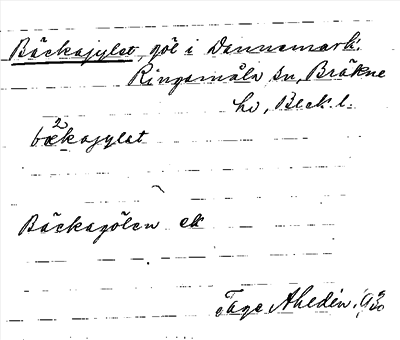 Bäckagylet, göl i Dannemark.
Ringamåla sn, Bräkne
hd, Blek. l.
bækagylet
Bäckagölen ek
Tage Ahldén. 1930